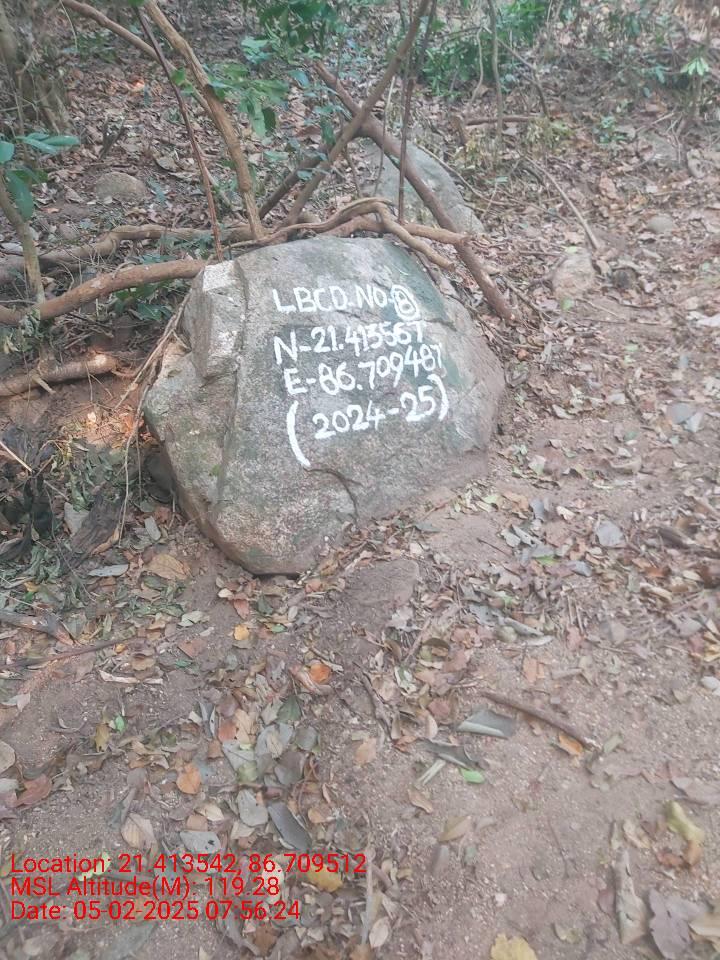 LBCD.NO-8
N-21.413567
E-86.709487
(2024-25)
Location: 21.413542, 86.709512
MSL Altitude(M): 119.28
Date: 05-02-2025 07:56:24